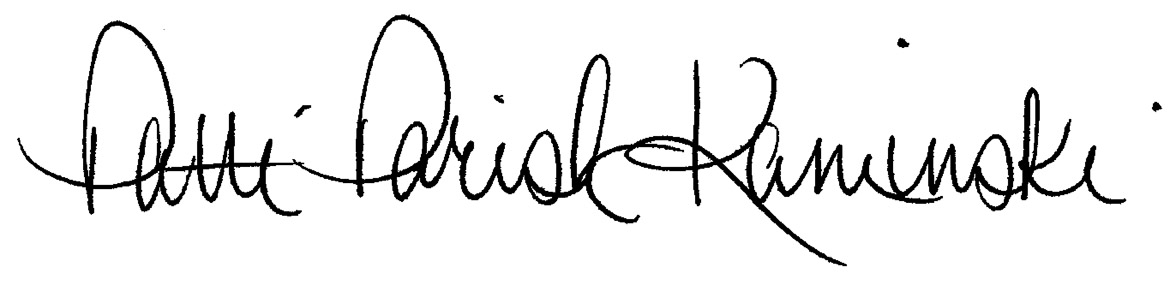 Patti Parish Kaminski